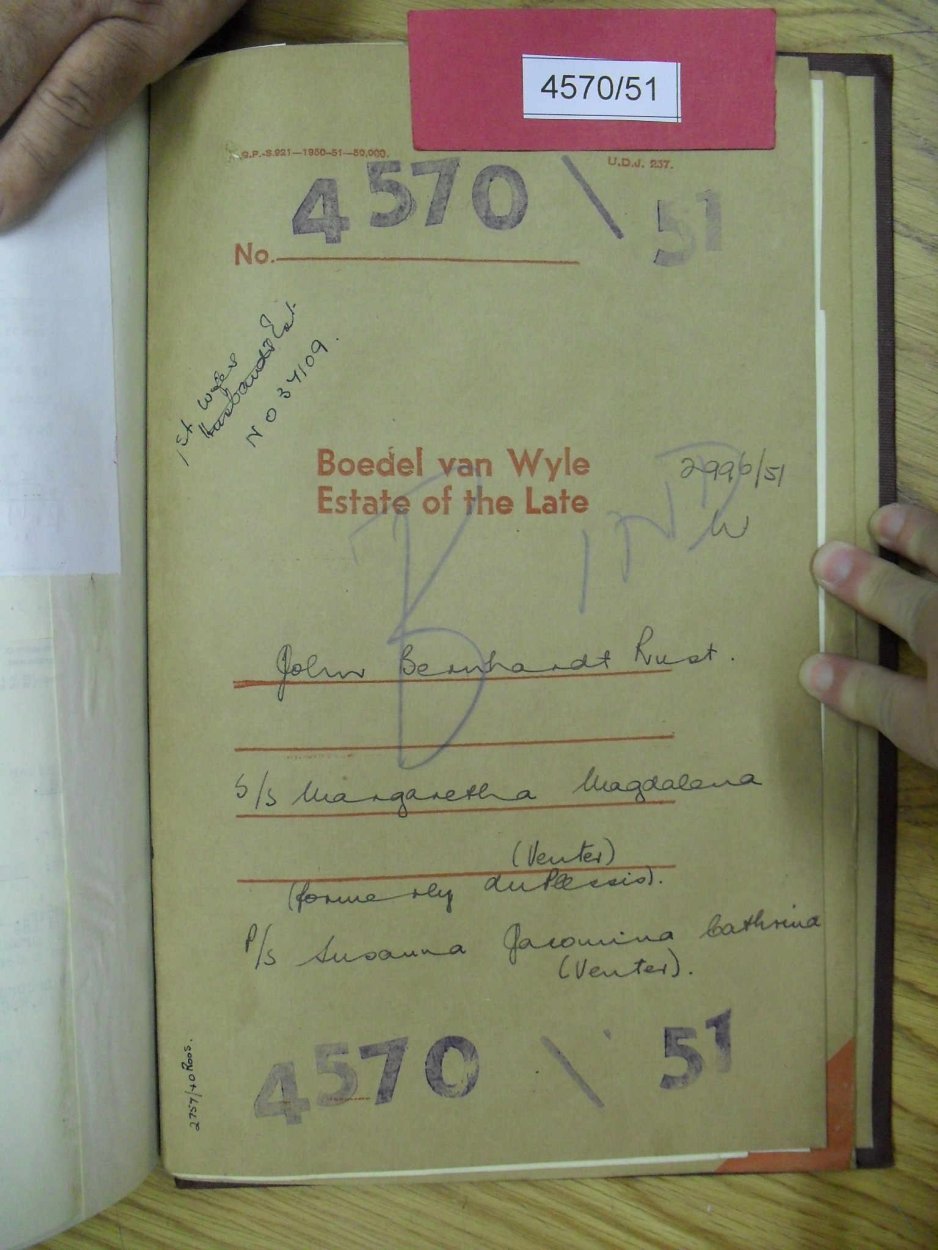 4570/51
G.P.-S.921—1950-51—50,000.
U.D.J. 237.
4570 \ 51
No.
1st wifes
Husbands Est.
No 34109.
Boedel van Wyle
Estate of the Late
2996/51
W
BIND
John Bernhardt Rust.
S/S Margaretha Magdalena
(Venter)
(formerly du Plessis).
P/S Susanna Jacomina Cathrina
(Venter).
4570 \ 51
2757/40 Roos.